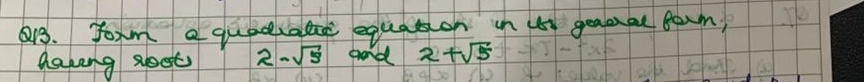 Q13. Form a quadratic equation in its general form,
having roots 2-√5 and 2+√5